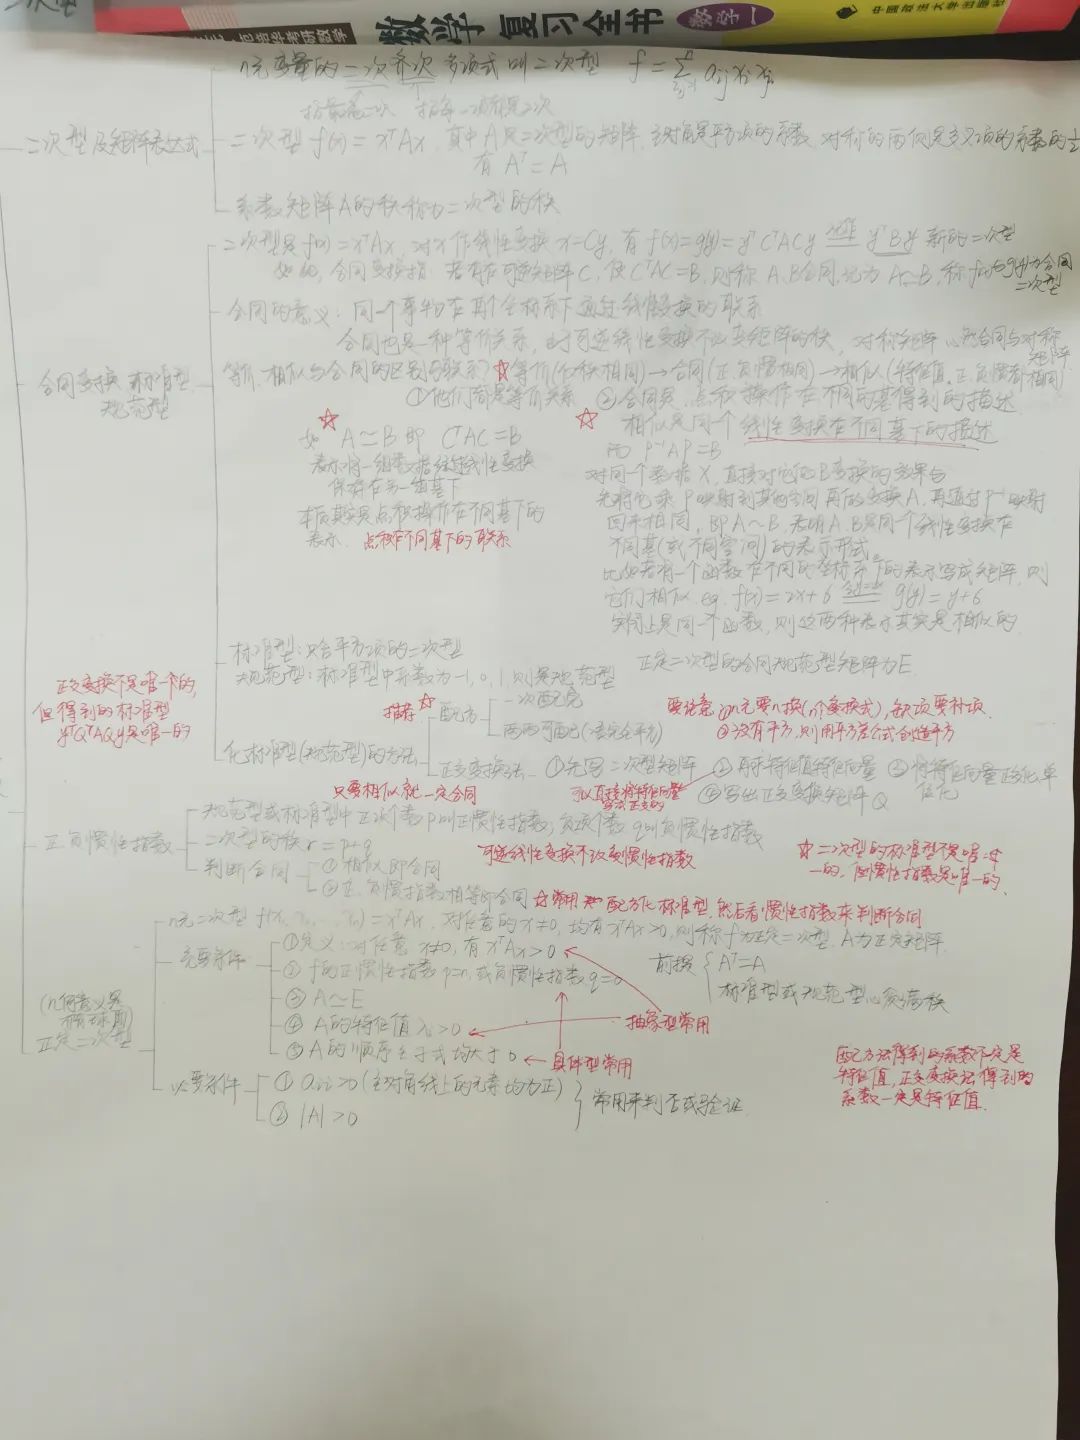 数学复习全书
数学一
中国政法大学出版社
n元变量的二次齐次多项式叫二次型 f=∑aijxixj
指最高二次 指每一项都是二次
二次型及矩阵表达式
二次型 f(x)=xᵀAx, 其中A是二次型的矩阵, 主对角是平方项的系数, 对称的两侧是交叉项的系数的1/2
有 Aᵀ=A
系数矩阵A的秩称为二次型的秩
二次型是 f(x)=xᵀAx, 对x作线性变换 x=Cy, 有 f(x)=g(y)=yᵀCᵀACy 记作 yᵀBy 新的二次型
合同变换指 若存在可逆矩阵C, 使CᵀAC=B, 则称A,B合同, 记为A≃B, 称f(x)与g(y)为合同
二次型
合同的意义: 同一个事物在两个坐标系下通过线性变换的联系
合同也是一种等价关系, 由于可逆线性变换不改变矩阵的秩, 对称矩阵必须合同与对称
矩阵
合同变换 标准型
规范型
等价, 相似与合同的区别与联系? ☆等价(仅秩相同)→合同(正、负惯相同)→相似(特征值, 正、负惯都相同)
①他们都是等价关系 ②合同是 点积操作在不同的基得到的描述
相似是同一个线性变换在不同基下的描述
而 P⁻¹AP=B
如 A≃B 即 CᵀAC=B
表示将一组数据经过线性变换
保存在另一组基下
本质其实是点积操作在不同基下的
表示. 点积在不同基下的联系
对同一个数据X, 直接对它做B变换的效果与
先将它乘P映射到其他空间再做变换A, 再通过P⁻¹映射
回来相同, 即A∼B, 表明A,B是同一个线性变换在
不同基(或不同空间)的表示形式。
比如若有一个函数在不同的坐标系下的表示写成矩阵, 则
它们相似. eg. f(x)=2x+6 g(y)=y+6
实际上是同一个函数, 则这两种表示其实是相似的.
标准型: 只含平方项的二次型
规范型: 标准型中系数为-1, 0, 1, 则是规范型
正定二次型的合同规范型矩阵为E.
正交变换不是唯一的,
但得到的标准型
yᵀQᵀAQy是唯一的
化标准型(规范型)的方法
推荐
配方
一次配完
两两可配(凑完全平方)
要注意 ①n元要n换(n个变换式), 缺项要补项.
②没有平方, 则用平方差公式创造平方
正交变换法
①先写二次型矩阵 ②再求特征值特征向量 ③将特征向量正交化单
位化
④写出正交变换矩阵Q
只要相似就一定合同
可以直接将特征向量
写成正交的
正、负惯性指数
规范型或标准型中正项个数p叫正惯性指数; 负项个数q叫负惯性指数
二次型的秩 r=p+q
可逆线性变换不改变惯性指数
判断合同
①相似即合同
②正、负惯指数相等即合同 ☆常用 配方化标准型, 然后看惯性指数来判断合同
☆二次型的标准型不是唯一
一的, 但惯性指数是唯一的.
n元二次型 f(x₁, x₂, … xₙ)=xᵀAx, 对任意的x≠0, 均有xᵀAx>0, 则称f为正定二次型, A为正定矩阵.
充要条件
①定义: 对任意x≠0, 有xᵀAx>0
②f的正惯性指数p=n, 或负惯性指数q=0
③A≃E
④A的特征值λi>0
⑤A的顺序主子式均大于0
抽象型常用
具体型常用
前提
Aᵀ=A
标准型或规范型必须满秩
(几何意义是
椭球面)
正定二次型
必要条件
①aii>0(主对角线上的元素均为正)
②|A|>0
常用来判否或验证
配方法得到的系数不一定是
特征值, 正交变换法得到的
系数一定是特征值.